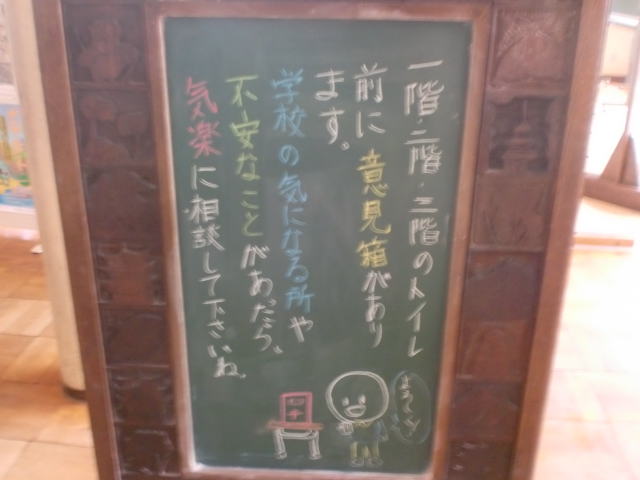 一階・二階・三階のトイレ
前に意見箱があり
ます。
学校の気になる所や
不安なことがあったら、
気楽に相談して下さいね。